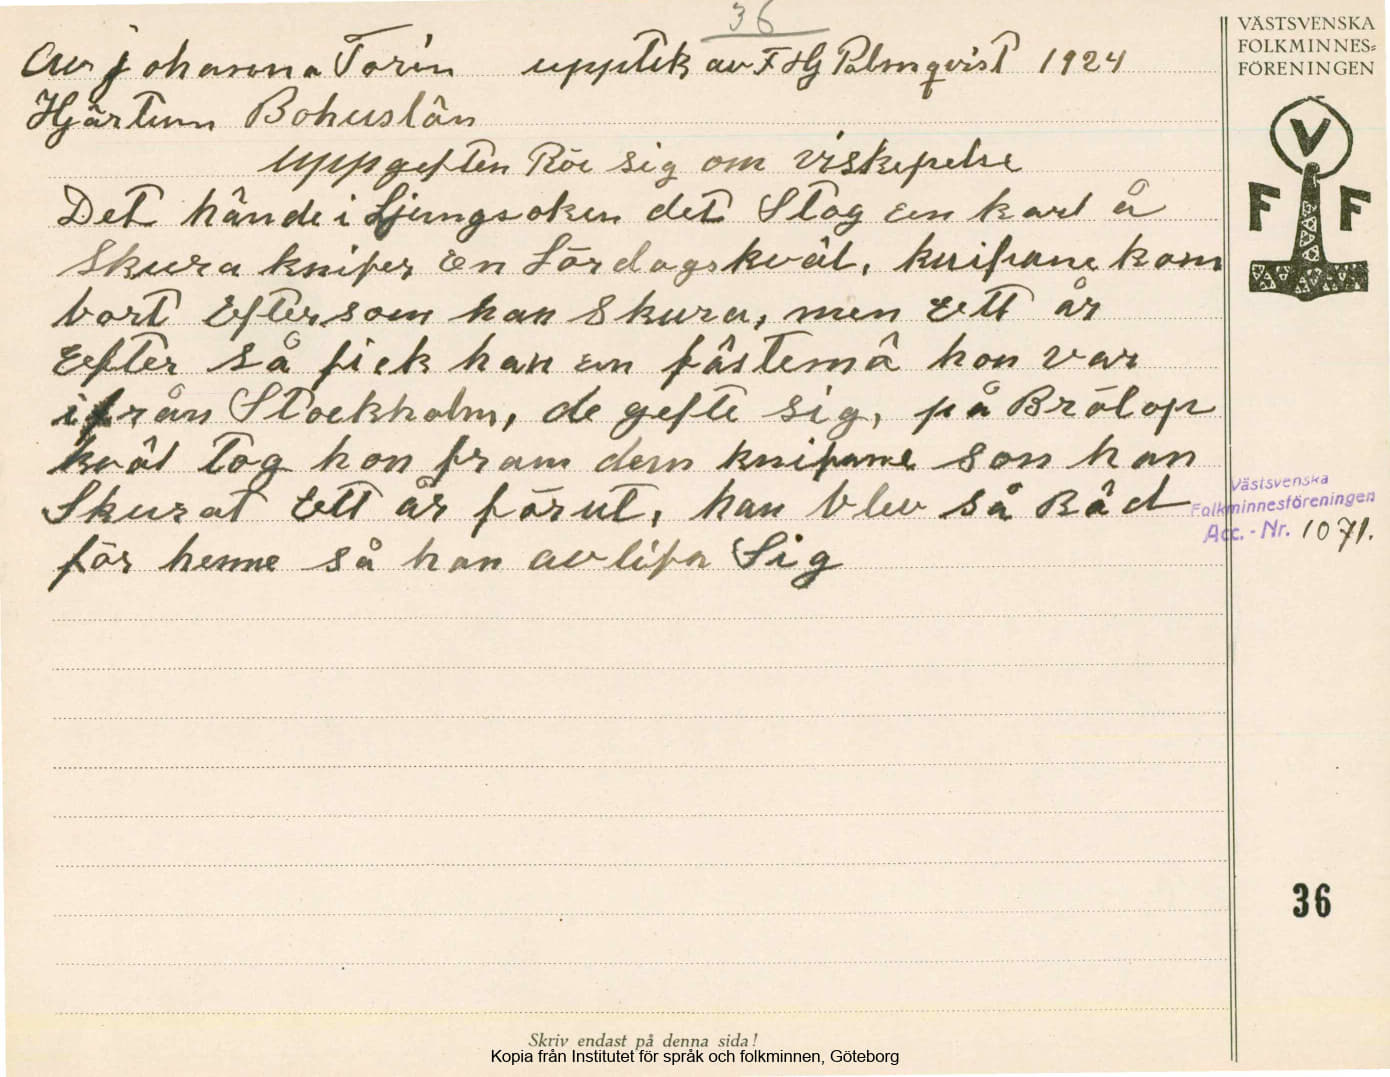 36
Av johanna Torin upptek av F HJ Palmqvist 1924
Hjärtum Bohuslän
uppgeften Rör sig om viskepelse
Det hände i Ljungsoken det Stog en karl å
Skura knifer En Lördagskväl, knifvane kom
bort Eftersom han Skura, men Ett år
Eefter så fick han en fästemö hon var
ifrån Stockholm, de gefte sig, på Brölop
kväl tog hon fram dem knifvane som han
Skurat Ett år förut, han blev så Räd
för henne så han avlifa Sig
VÄSTSVENSKA
FOLKMINNES=
FÖRENINGEN
V
F F
Västsvenska
Folkminnesföreningen
Acc. - Nr. 1071.
36
Skriv endast på denna sida!
Kopia från Institutet för språk och folkminnen, Göteborg